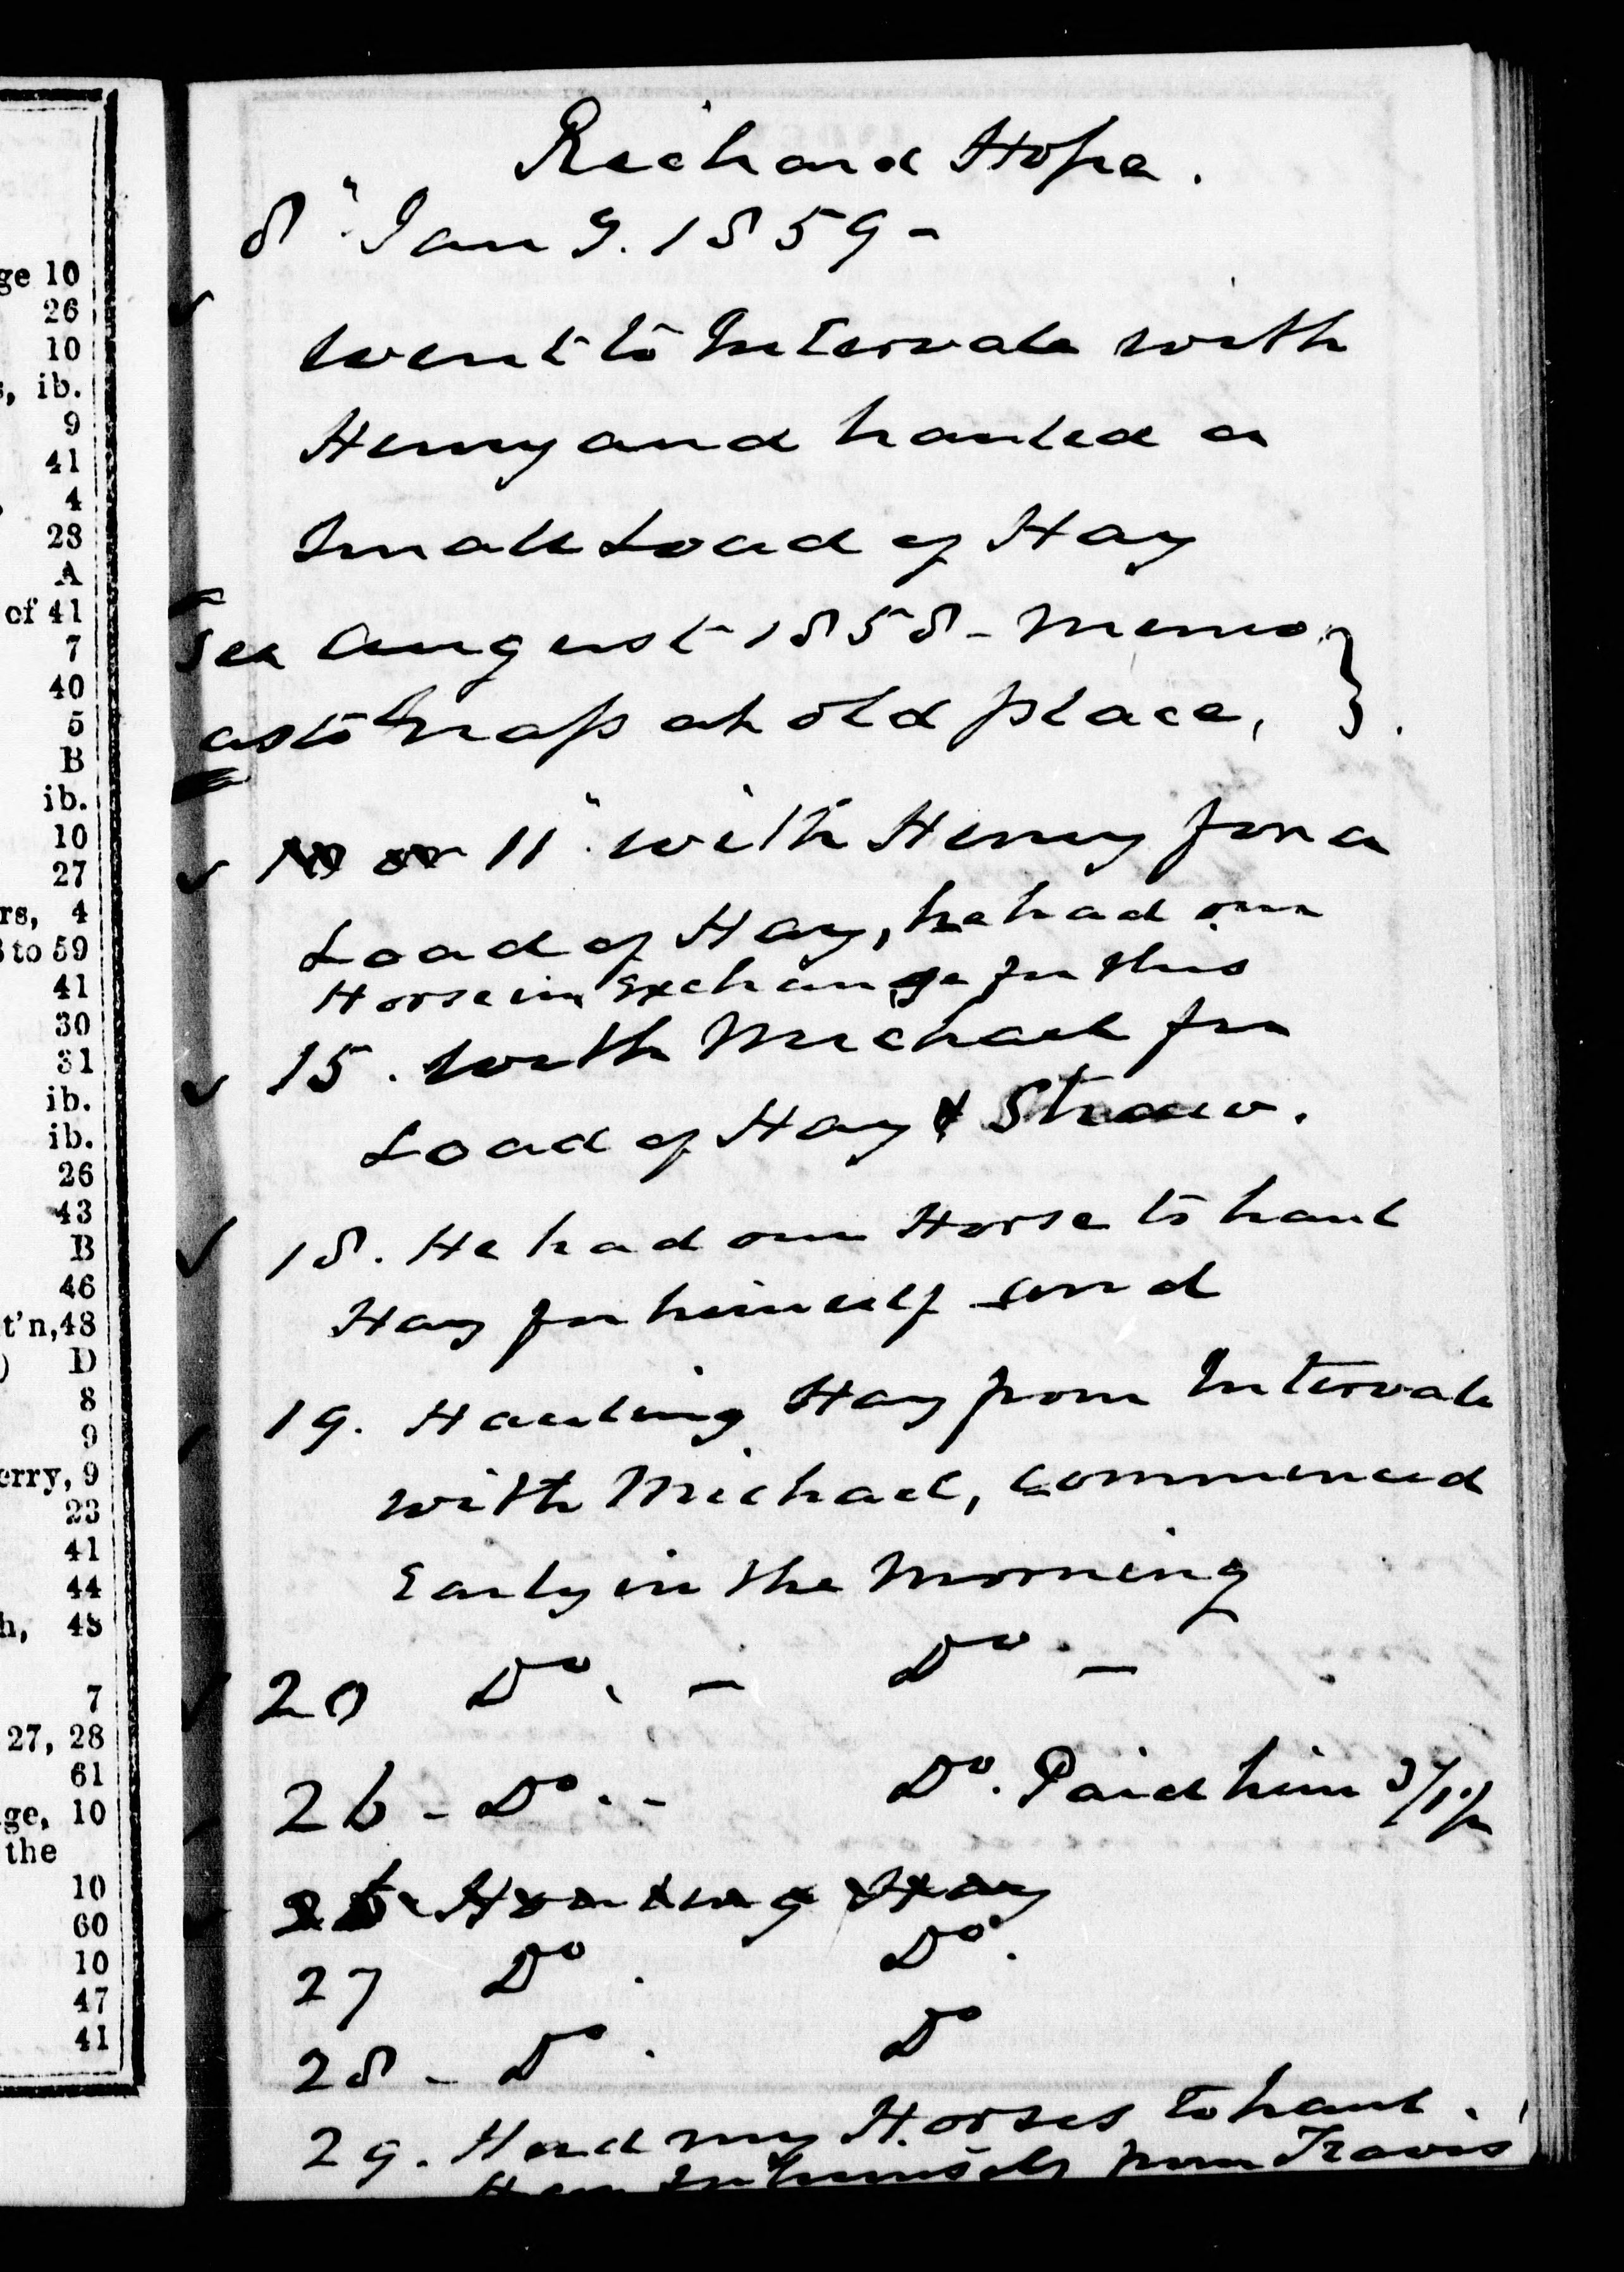 ge 10
26
10
s, ib.
9
41
4
28
A
of 41
7
40
5
B
ib.
10
27
rs, 4
3 to 59
41
30
31
ib.
ib.
26
43
B
46
t'n, 48
) D
8
9
erry, 9
23
41
44
h, 48
7
27, 28
61
ge, 10
the
10
60
10
47
41
Richard Hope.
8" Jan 9. 1859 -
Went to Intervale with
Henry and hauled a
Small Load of Hay
See August 1858 - Memo }
as to Grass at old place, }.
10 or 11" with Henry for a
Load of Hay, he had our
Horse in Exchange for this
15. With Michael for
Load of Hay & Straw.
18. He had our Horse to haul
Hay for himself and
19. Hauling Hay from Intervale
with Michael, commenced
Early in the Morning
20 Do. - Do. -
26 - Do. - Do. Paid him
26 - Hauling Hay
27 Do. Do.
28 - Do. Do
29. Had my Horses to haul.
Hay for himself from Travis